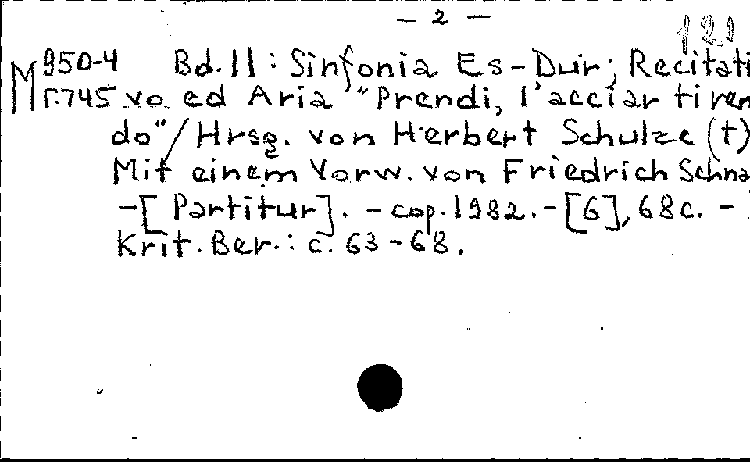 — 2 —
121
M 950-4 Bd. 11 : Sinfonia Es-Dur; Recitati
r.745 vo ed Aria "Prendi, l'acciar ti ren
do" / Hrsg. von Herbert Schulze (t)
Mit einem Vorw. von Friedrich Schna
-[Partitur]. - cop. 1982. - [6], 68 c. -
Krit. Ber.: c. 63-68.